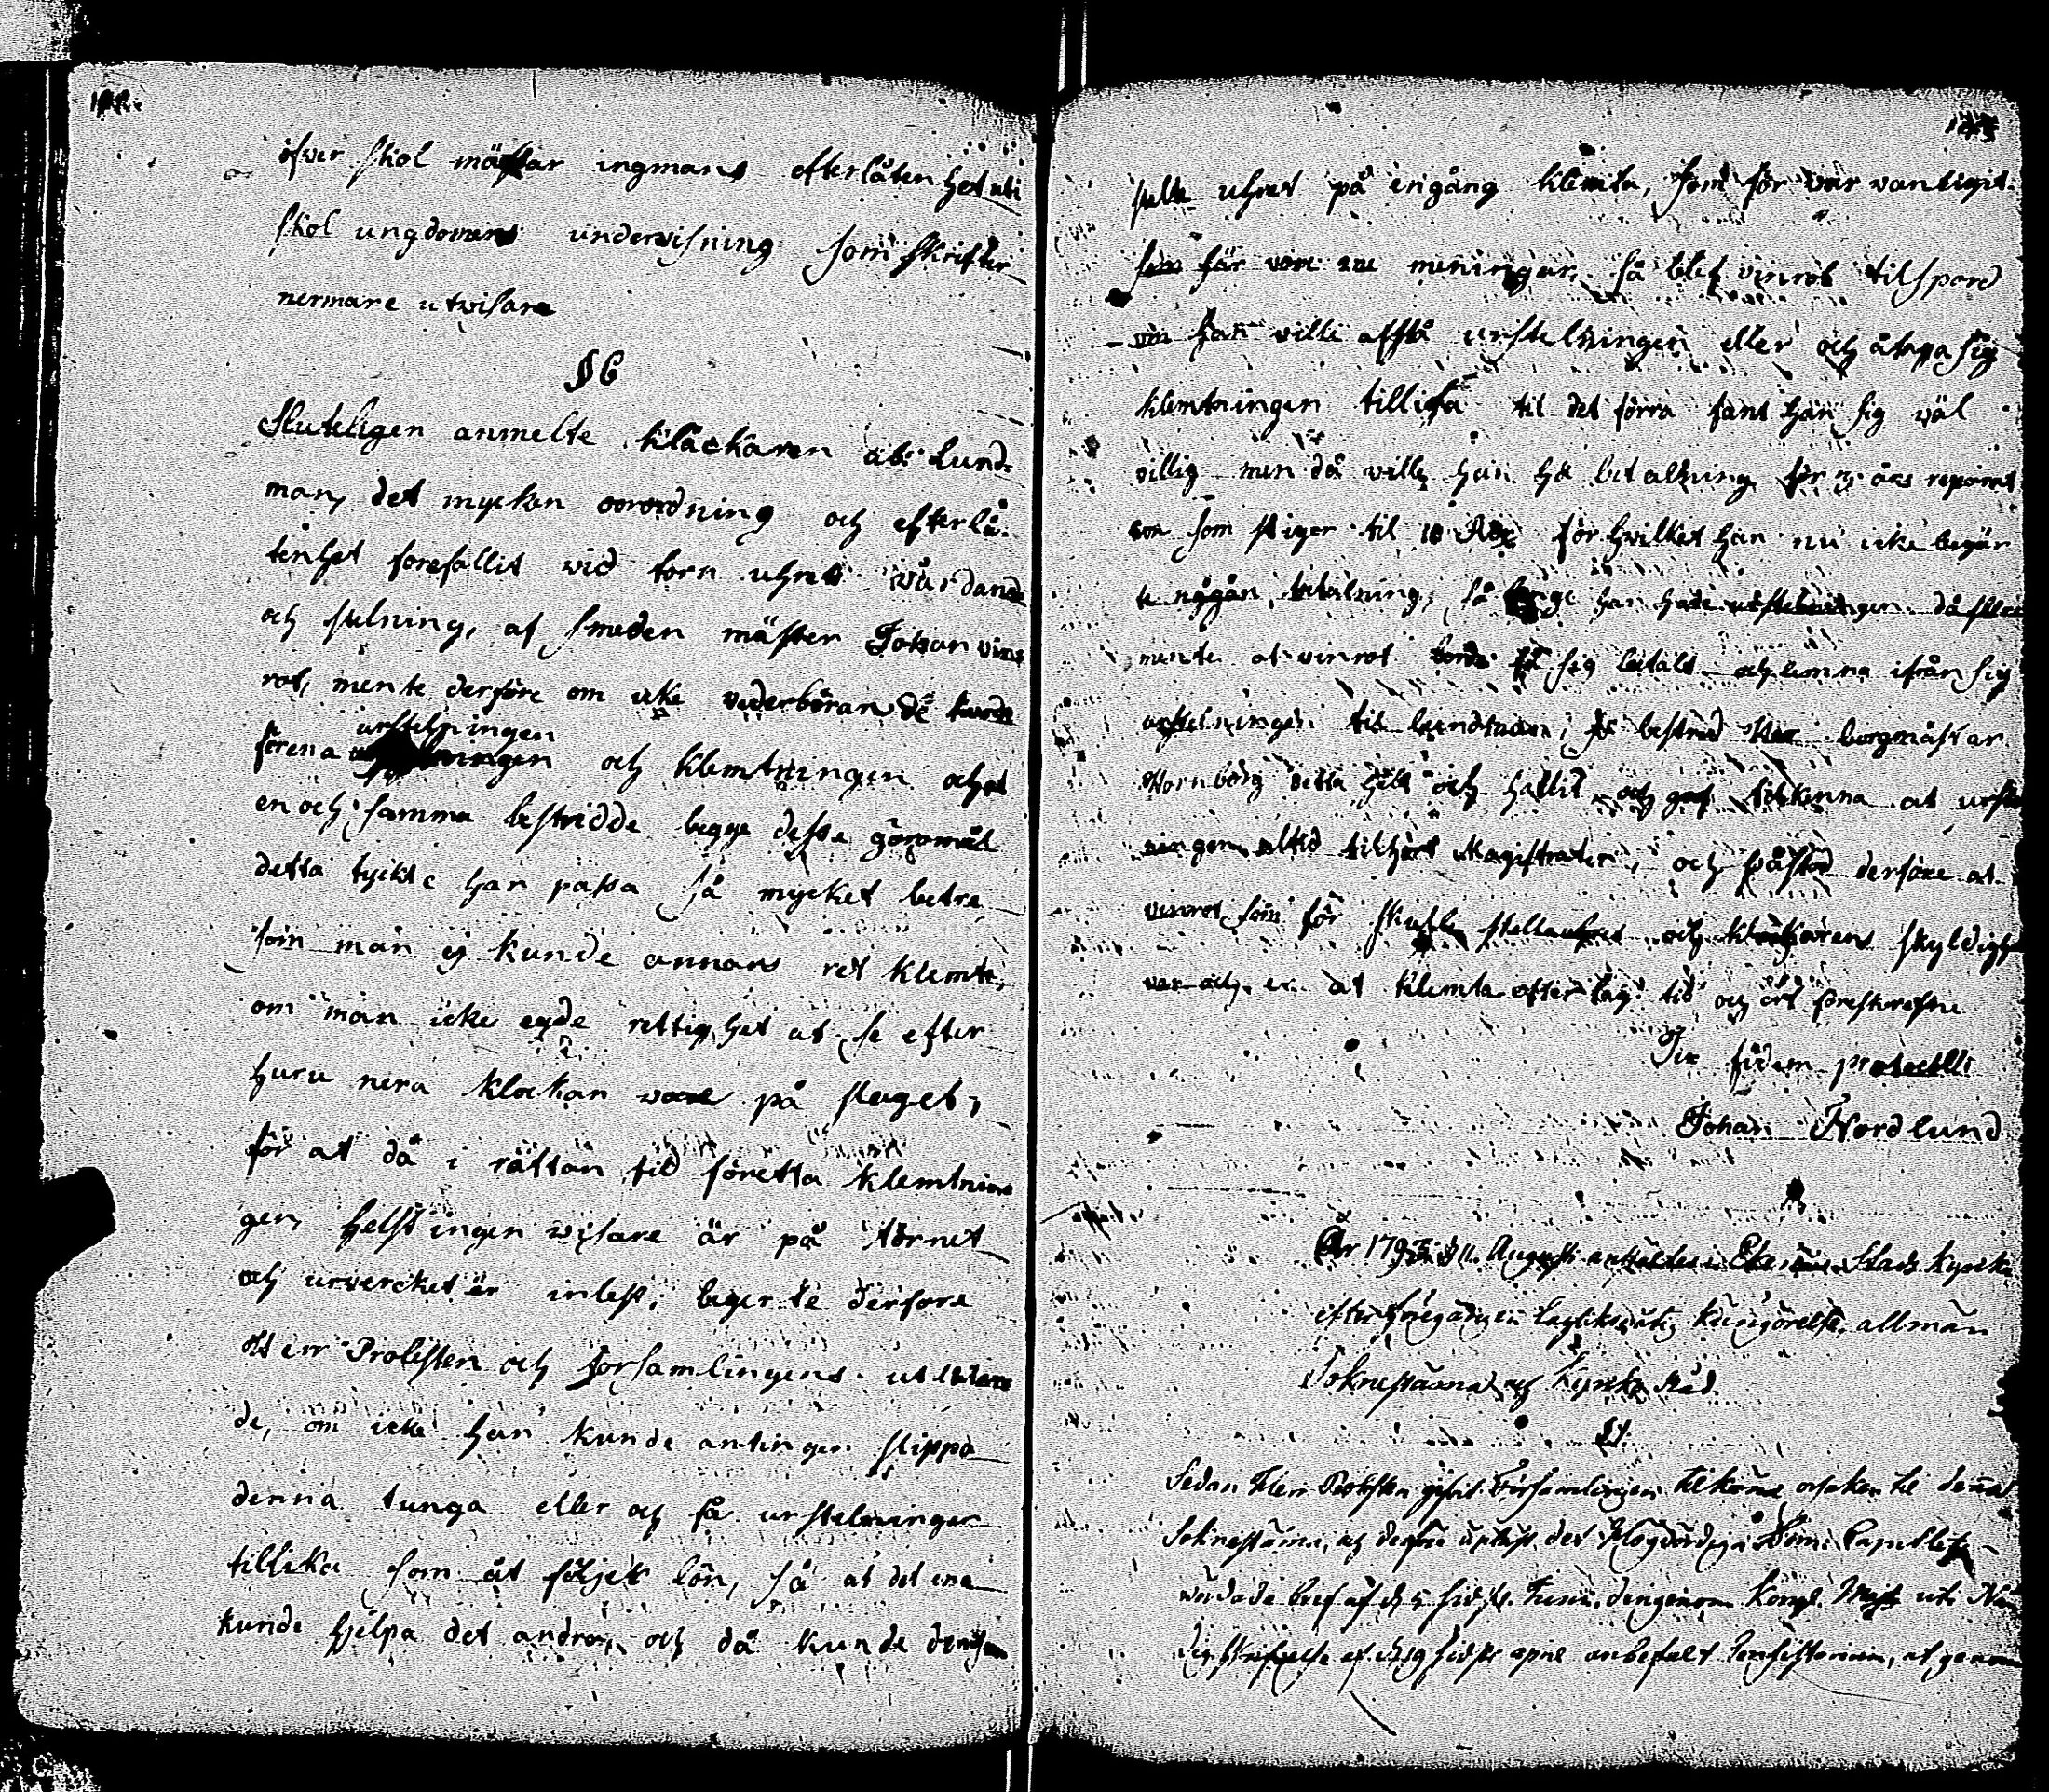 öfver skol mästar ingmans efterlåtenhet uti
skol ungdomens undervisning som skrifter
nermare utvisare
§ 6
Sluteligen anmelte klåckaren abr: Lund-
man, det mycken oorordning och efterlå-
tenhet forefallit vid torn uhrets vårdande
och stelning, af smeden mäster Johan vin-
rot, mente derföre om icke vederbörande
urstelningen
förena och klemtningen och at
en och samma bestridde begge desse göromål
detta tyckte han passa så mycket betre
som man ej kunde annars ret klemta,
om man icke egde rettighet at se efter
huru nera klockan vore på slaget,
för at då i rättan tid företta klemtnin-
gen, helst ingen visare är på tornet
och urvercket är inlest, begerte derfore
Herr Probsten och forsamlingens utlåtan-
de, om icke han kunde antingen slippa
denna tunga eller och få urstelningen
tillika som åt följer lön, så at det ena
kunde hjelpa det andra, och då kunde
uhret på en gång klemta, som för var vanligit.
här vore meningar, så blef vinrot tilspord
om han ville afstå urstelningen eller och åtaga sig
klemtningen tillika til det förra fant han sig väl
villig men då ville han ha betalning för 3 års reparat
ion som stiger til 10 Rdr för hvilket han nu icke begär
te någån betalning, så länge han hade urstelningen.
mente at vinrot borde få sig betalt och lemna ifrån sig
urstelningen til Lundman, bestred borgmästar
Hornborg detta helt och hållit och gaf tilkenna at urstel
ningen altid tilhört Magistraten, och påstod derföre at
vinrot som för skulle stella uhret och klåckarens skyldighet
var och er at klemta efter lag tid och ort föreskrefne
In fidem protocolli
Johan Nordlund
År 179 d 11 Augusti anstäldes i Ekenäs Stads kyrka
efter föregången lagliksmätig kungörelse, allmän
Soknestämma och Kyrko Råd.
§ 1.
Sedan Herr Probsten gifvit Församlingen tilkänna orsaken til denna
Sokneståma, och derföre uplast det Högvördiga Dom Capitlets
vördade bref af d 5 sidstl. Junii, deruti Kongl. Majt uti Nå-
dig skrifvelse af d 19 sidstl april anbefalt Consistorium, at genom